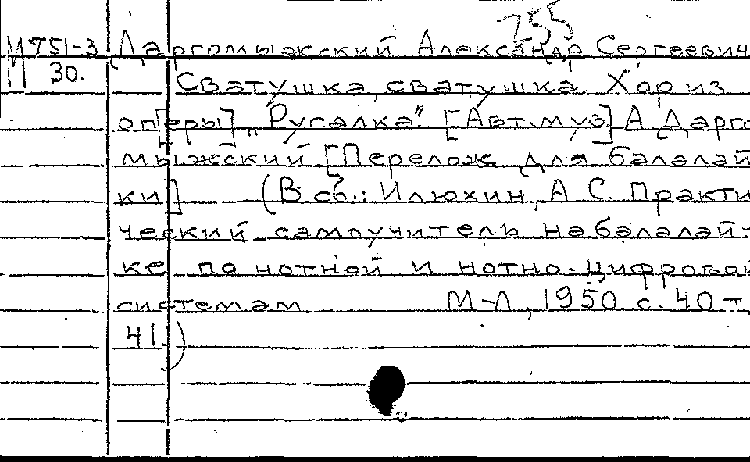 255
М751-3 Даргомыжский Александр Сергеевич
30. Сватушка, сватушка. Хор из
оп[еры] „Русалка". [Авт.муз] А Дарго
мыжский. [Перелож для балалай
ки] (В сб.: Илюхин, А С. Практи
ческий самоучитель на балалай-
ке по нотной и нотно-цифровой
системам М-Л, 1950 с. 40-
41)